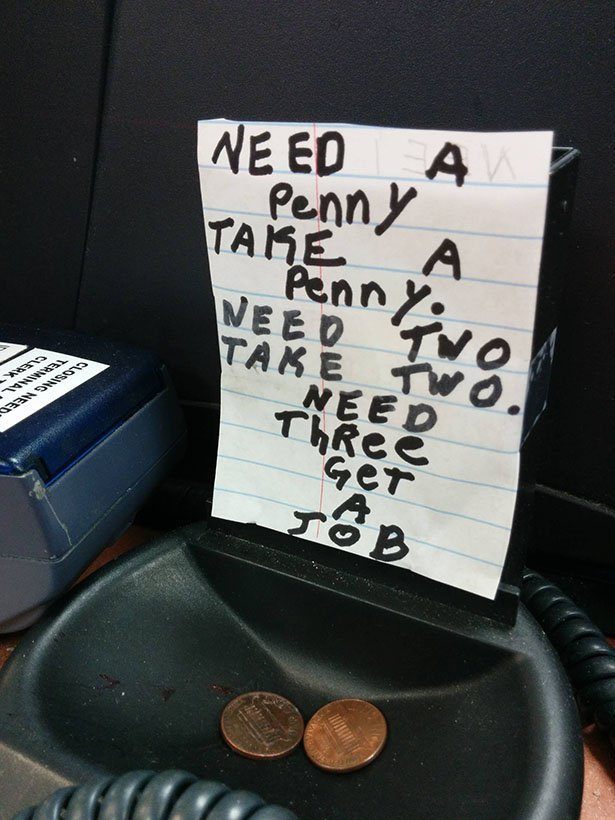 NEED A
Penny
TAKE A
Penny.
NEED TWO
TAKE TWO.
NEED
ThRee
GeT
A
JOB
CLOSING NEED
TERMINAL
CLERK